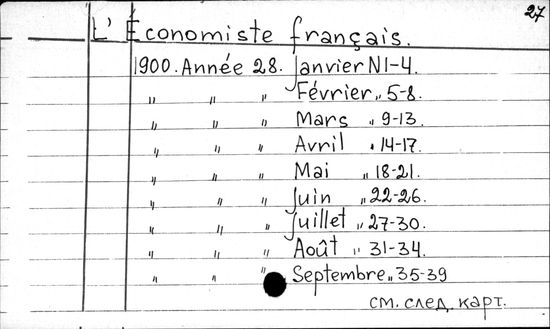 27
L'Économiste français.
1900. Année 28. Janvier N1-4.
" " " Février " 5-8.
" " " Mars " 9-13.
" " " Avril " 14-17.
" " " Mai " 18-21.
" " " Juin " 22-26.
" " " Juillet " 27-30.
" " " Août " 31-34.
" " " Septembre " 35-39
см. след. карт.